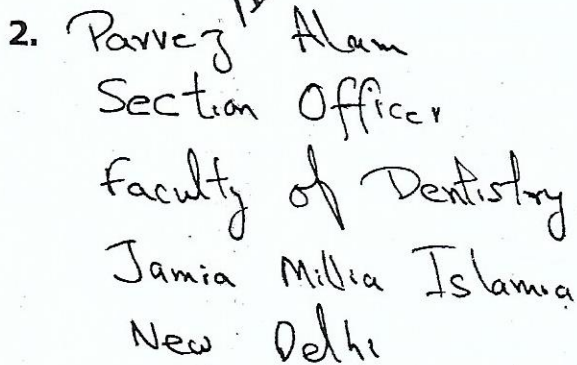 2. Parvez Alam
Section Officer
Faculty of Dentistry
Jamia Millia Islamia
New Delhi